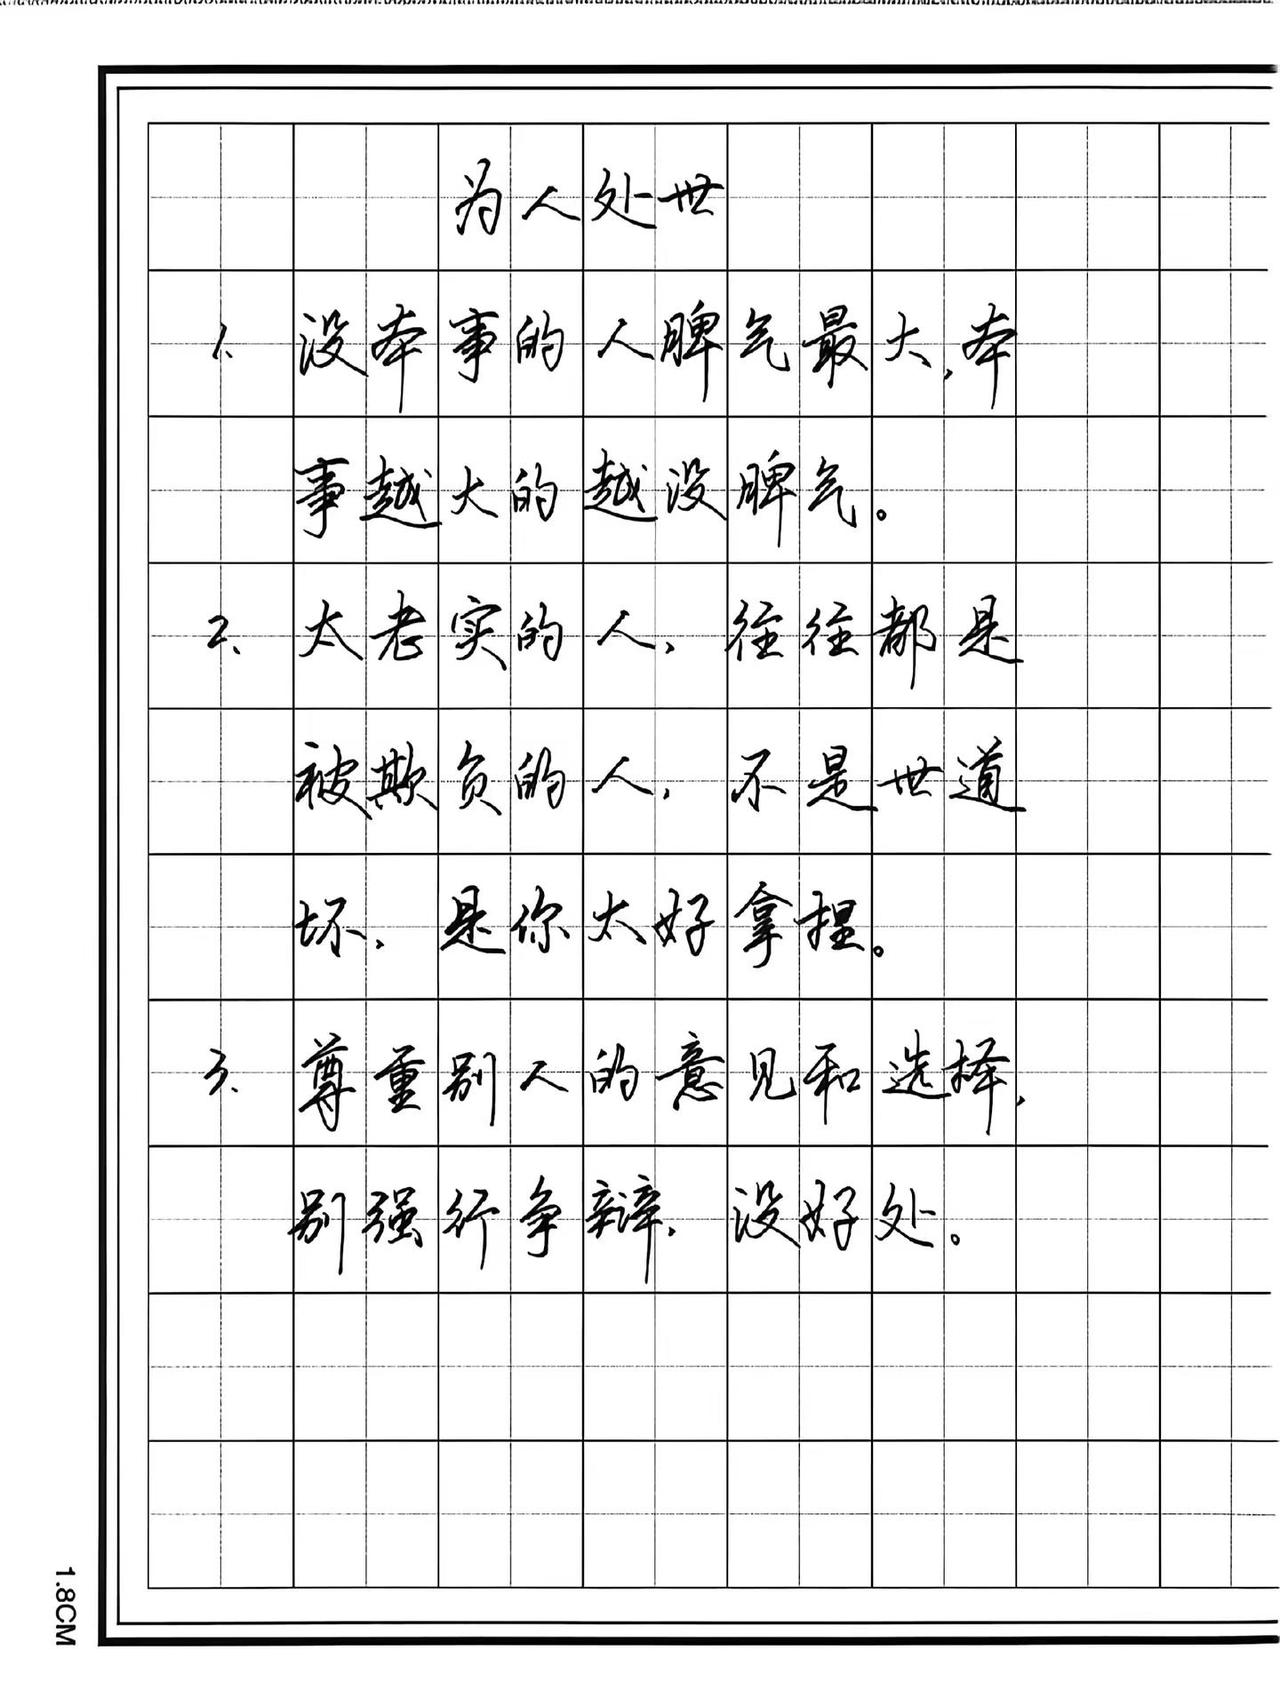 为人处世
1、没本事的人脾气最大,本
事越大的越没脾气。
2、太老实的人,往往都是
被欺负的人,不是世道
坏,是你太好拿捏。
3、尊重别人的意见和选择,
别强行争辩,没好处。
1.8CM